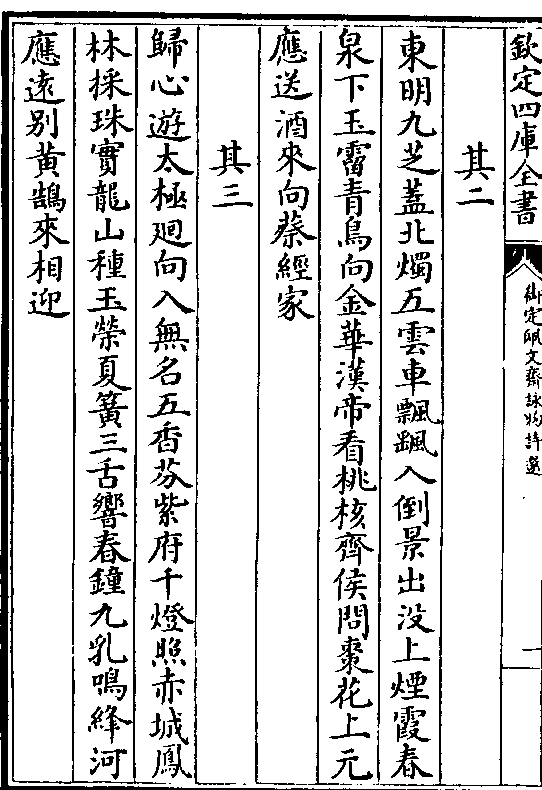 欽定四庫全書
御定佩文齋詠物詩選
一
其二
東明九芝葢北燭五雲車飄飖入倒景出没上煙霞春
泉下玉霤青鳥向金華漢帝看桃核齊侯問棗花上元
應送酒來向蔡經家
其三
歸心遊太極廻向入無名五香芬紫府千燈照赤城鳳
林採珠實龍山種玉榮夏簧三舌響春鐘九乳鳴絳河
應遠别黄鵠來相迎